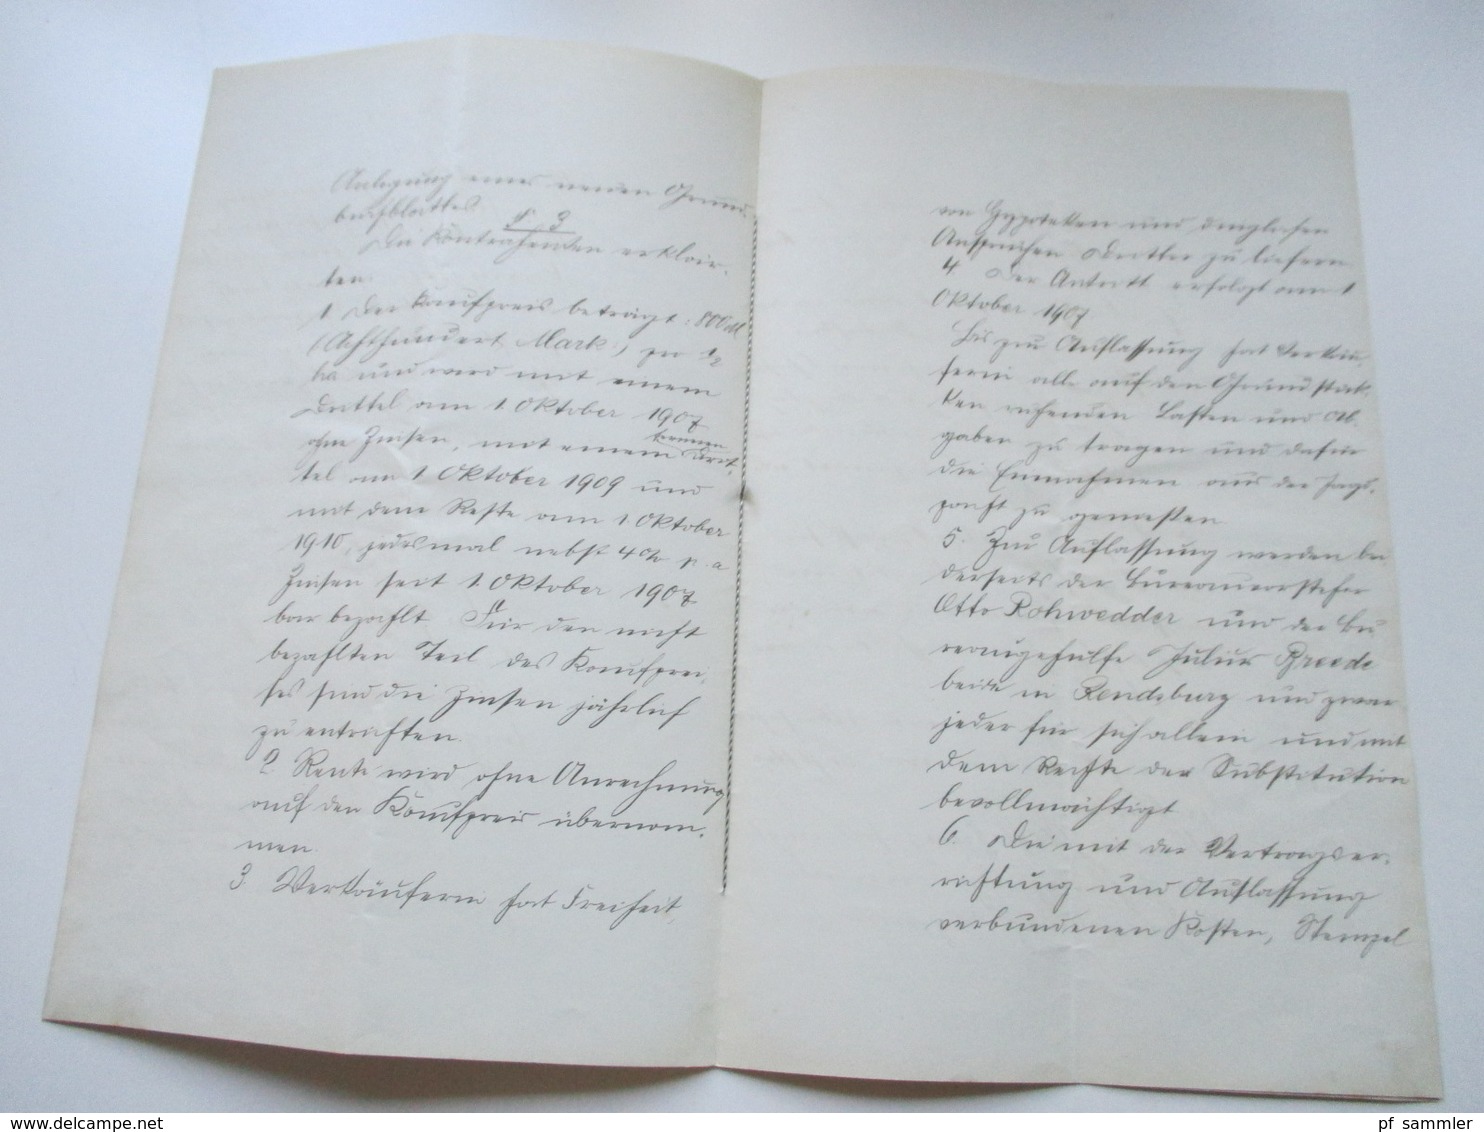 Anlegung eines neuen Grund-
buchblattes.
§ 3
Die Kontrahenten erklär-
ten:
1. Der Kaufpreis beträgt: 800 M
(Achthundert Mark) pr 1/2
ha und wird mit einem
Drittel am 1. Oktober 1907
ohne Zinsen, mit einem ferneren Drit-
tel am 1. Oktober 1909 und
mit dem Reste am 1. Oktober
1910, jedesmal nebst 4 % p. a.
Zinsen seit 1. Oktober 1907
bar bezahlt. Für den nicht
bezahlten Teil des Kaufprei-
ses sind die Zinsen jährlich
zu entrichten.
2. Rente wird ohne Anrechnung
auf den Kaufpreis übernom-
men.
3. Verkäuferin hat Freiheit,
von Hypoteken und dinglichen
Ansprüchen Dritter zu liefern.
4. Der Antritt erfolgt am 1
Oktober 1907
Bis zur Auflassung hat Verkäu-
ferin alle auf den Grundstük-
ken ruhenden Lasten und Ab-
gaben zu tragen und dafür
die Einnahmen aus der Jagd-
pacht zu genießen
5. Zur Auflassung werden bei-
derseits der Bureauvorsteher
Otto Rohwedder und der Bü-
reaugehülfe Julius Breede
beide in Rendsburg und zwar
jeder für sich allein und mit
dem Rechte der Substitution
bevollmächtigt
6. Die mit der Vertragser-
richtung und Auflassung
verbundenen Kosten, Stempel
pf sammler